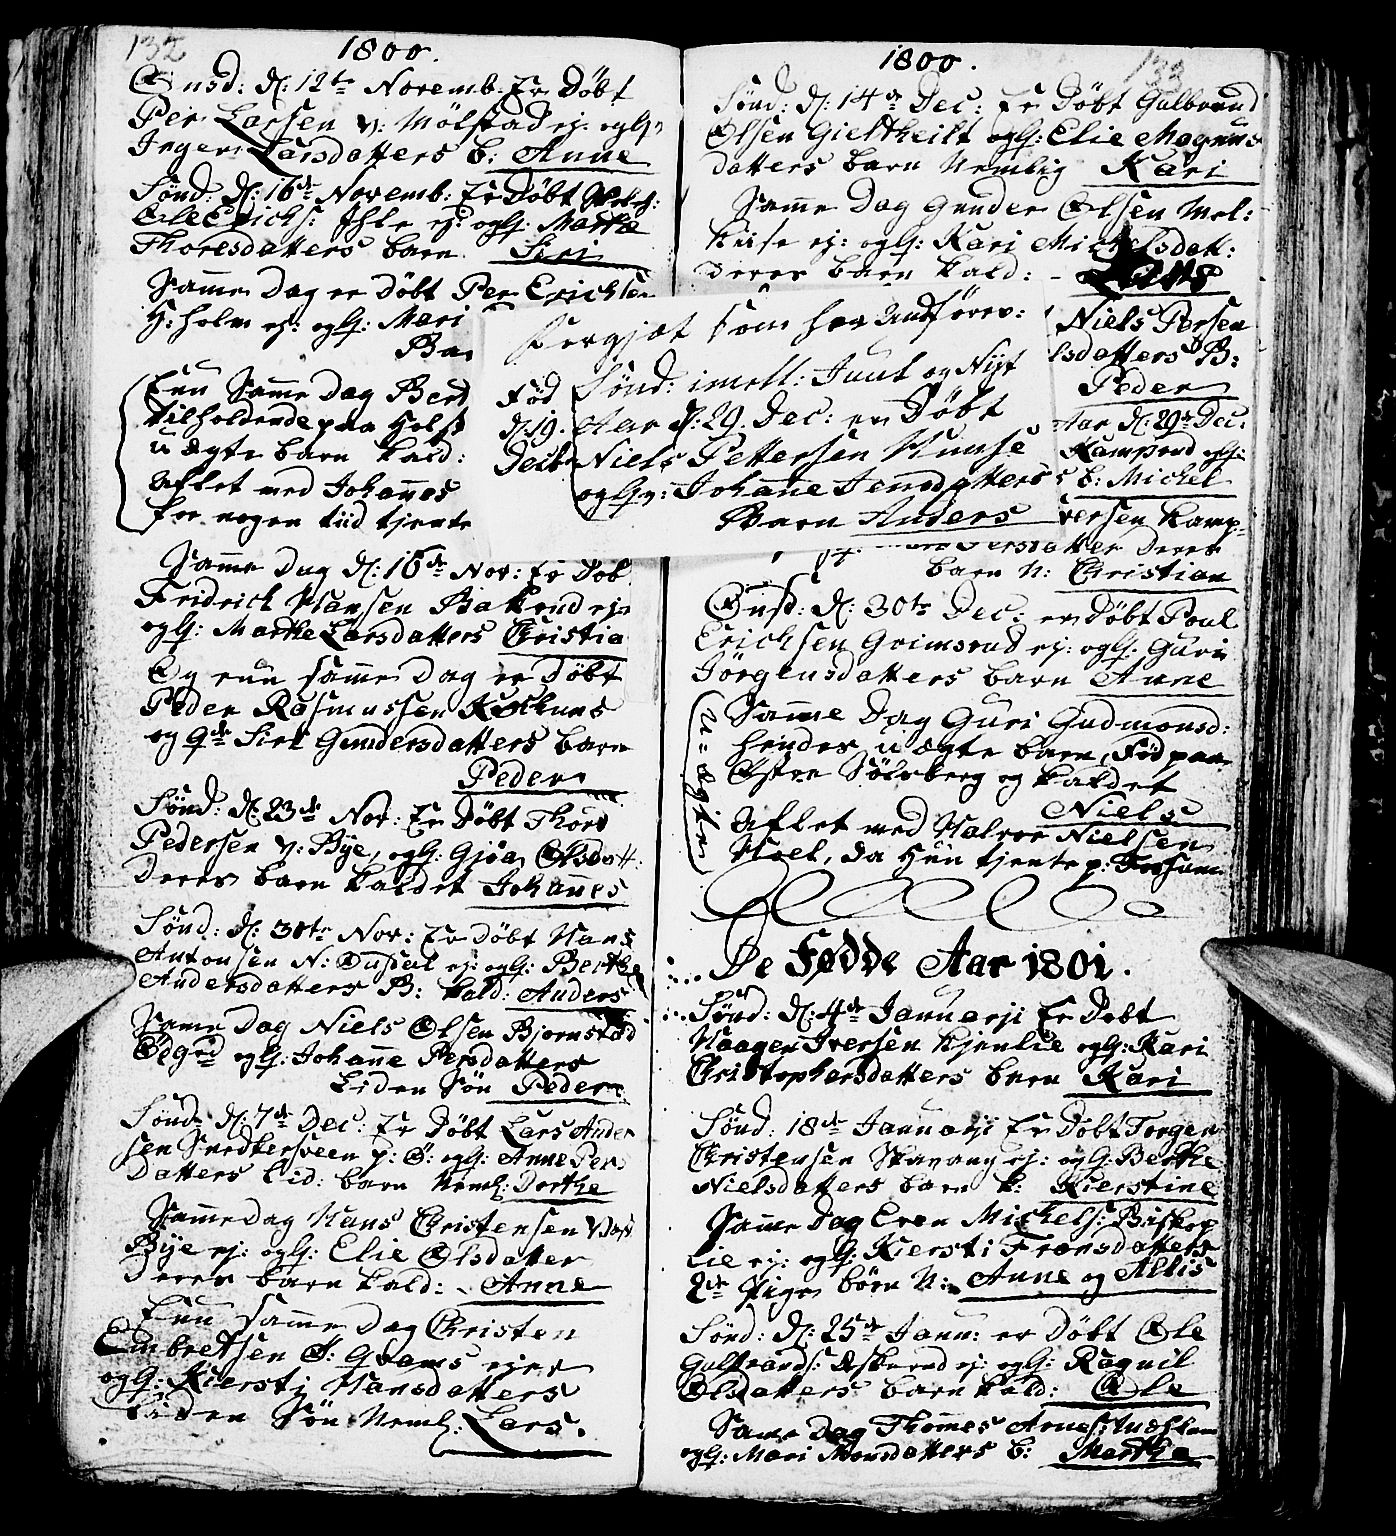 132
1800.
Onsd: d: 12te Novemb: Er Døbt
Per Larsen v: Mølstad ej: og G:
Inger Larsdatters b: Anne
Sønd: d: 16de Novemb: Er Døbt
Ole Erichs: Ihle ej: og G: Marthe
Thoresdatters barn Siri
Samme Dag er Døbt Per Erichsen
H:holm ej: og G: Mari
Ba
Enu Samme Dag Ber
tilholdende paa Hols
u ægte barn kald:
aflet med Johannes
for nogen tiid tjente
Samme Dag d: 16de Nov: Er Døb
Fridrich Hansen Bakerud ej:
og G: Marthe Larsdatters Christia
Og enu samme Dag er Døbt
Peder Rasmussen
og G: Siri Gundersdatters barn
Peder
Sønd: d: 23de Nov: Er Døbt Thord
Pedersen v: Bye, og G: Gjøa Olsdatt:
Deres barn kaldet Johannes
Sønd: d: 30te Nov: Er Døbt Hans
Antonsen N: ej: og G: Berthe
Andersdatters B: kald: Anders
Samme Dag Niels Olsen Bjørnstad
Ødegrd og G: Johanne Persdatters
Liden Søn Peder
Sønd: d: 7de Dec: Er Døbt Lars Ander
sen Snedkersveen p: Ø: og G: Anne Pers
Datters Lid: barn Neml: Dorthe
Samme dag Hans Christensen
Bye ej: og G: Elie Olsdatter
Deres barn kald: Anne
Enu samme Dag Christen
Embretsen Ø: Grams ejer
og G: Kiersti Hansdatters
Liden Søn Neml: Lars.
133
1800.
Sønd: d: 14de Dec: Er Døbt Gulbrand
Olsen Giestheilt og G: Elie Magnus
datters barn Nemlig Kari
Samme Dag Gunder Olsen Mel:
huse ej: og G: Kari Michelsdatt:
Deres barn kald:
Niels Persen
lsdatters B:
Peder
Aar d: 29de Dec:
Kamperud og G:
b: Michel
versen Kamp
Persdatter Deres
barn N: Christian
Forgjæt som her Indføres:
Sønd: imell: Juul og Nyt
Fød
d: 19.
Decb:
Aar d: 29. Dec: er Døbt
Niels Pettersen Hunse
og G: Johanne Jensdatters
Barn Anders
Onsd: d: 30te Dec: er Døbt Poul
Erichsen Grimsrud ej: og G: Guri
Jørgensdatters barn Anne
u=ægte
Samme Dag Guri Gudmonsd:
hendes u ægte barn, Fød paa
Østre Sølsberg og kaldet
Niels
aflet med Halvor Nielsen
Hoel, da Hun tjente p:
De Fødde Aar 1801.
Sønd: d: 4de Januarji Er Døbt
Haagen Iversen Kjenlie og G: Kari
Christophersdatters barn Kari
Sønd: 18de Januarji Er Døbt Torgen
Christensen Skavang ej: og G: Berthe
Nielsdatters barn k: Kierstine
Samme Dag Even Michels: Biskop
lie ej: og G: Kiersti Fransdatters
2de Piger børn N: Anne og Allis
Sønd: d: 25de Janu: er Døbt Ole
Gulbrands: Askerud ej: og G: Ragnil
Olsdatters barn kald: Ole
Samme Dag Thomes Arnes:
og G: Mari Monsdatters b: Marthe